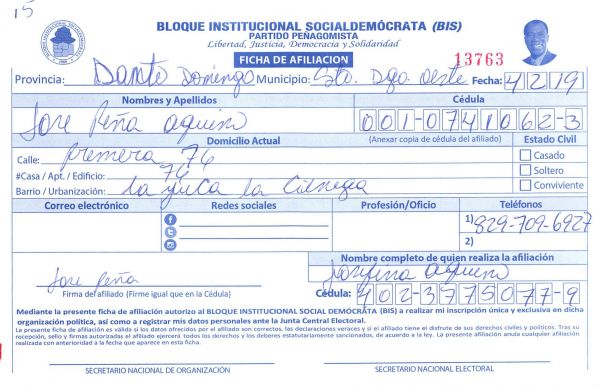 15
BLOQUE INSTITUCIONAL SOCIALDEMÓCRATA (BIS)
PARTIDO PEÑAGOMISTA
Libertad, Justicia, Democracia y Solidaridad
FICHA DE AFILIACION 13763
Provincia: Santo Domingo Municipio: Sto. Dgo. Oeste Fecha: 4/2/19
Nombres y Apellidos Cédula
Jose Peña Aquino 001-0741062-3
Domicilio Actual (Anexar copia de cédula del afiliado) Estado Civil
Calle: primera 76 Casado
#Casa / Apt. / Edificio: 76 Soltero
Barrio / Urbanización: La yuca la Cienega Conviviente
Correo electrónico Redes sociales Profesión/Oficio Teléfonos
1) 829-709-6927
2)
Nombre completo de quien realiza la afiliación
Josefina Aquino
Jose Peña
Firma del afiliado (Firme igual que en la Cédula) Cédula: 402-3775077-9
Mediante la presente ficha de afiliación autorizo al BLOQUE INSTITUCIONAL SOCIAL DEMÓCRATA (BIS) a realizar mi inscripción única y exclusiva en dicha
organización política, así como a registrar mis datos personales ante la Junta Central Electoral.
La presente ficha de afiliación es válida si los datos ofrecidos por el afiliado son correctos, las declaraciones veraces y si el afiliado tiene el disfrute de sus derechos civiles y políticos. Tras su
recepción, sello y firmas autorizadas el afiliado ejercerá todos los derechos y los deberes estatutariamente sancionados, de acuerdo a la ley. La presente afiliación anula cualquier afiliación
realizada con anterioridad a la fecha que aparece en esta ficha.
SECRETARIO NACIONAL DE ORGANIZACIÓN SECRETARIO NACIONAL ELECTORAL